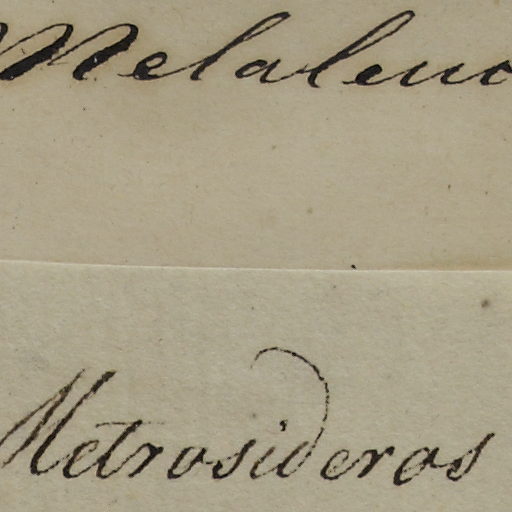 Melaleuc
Metrosideros